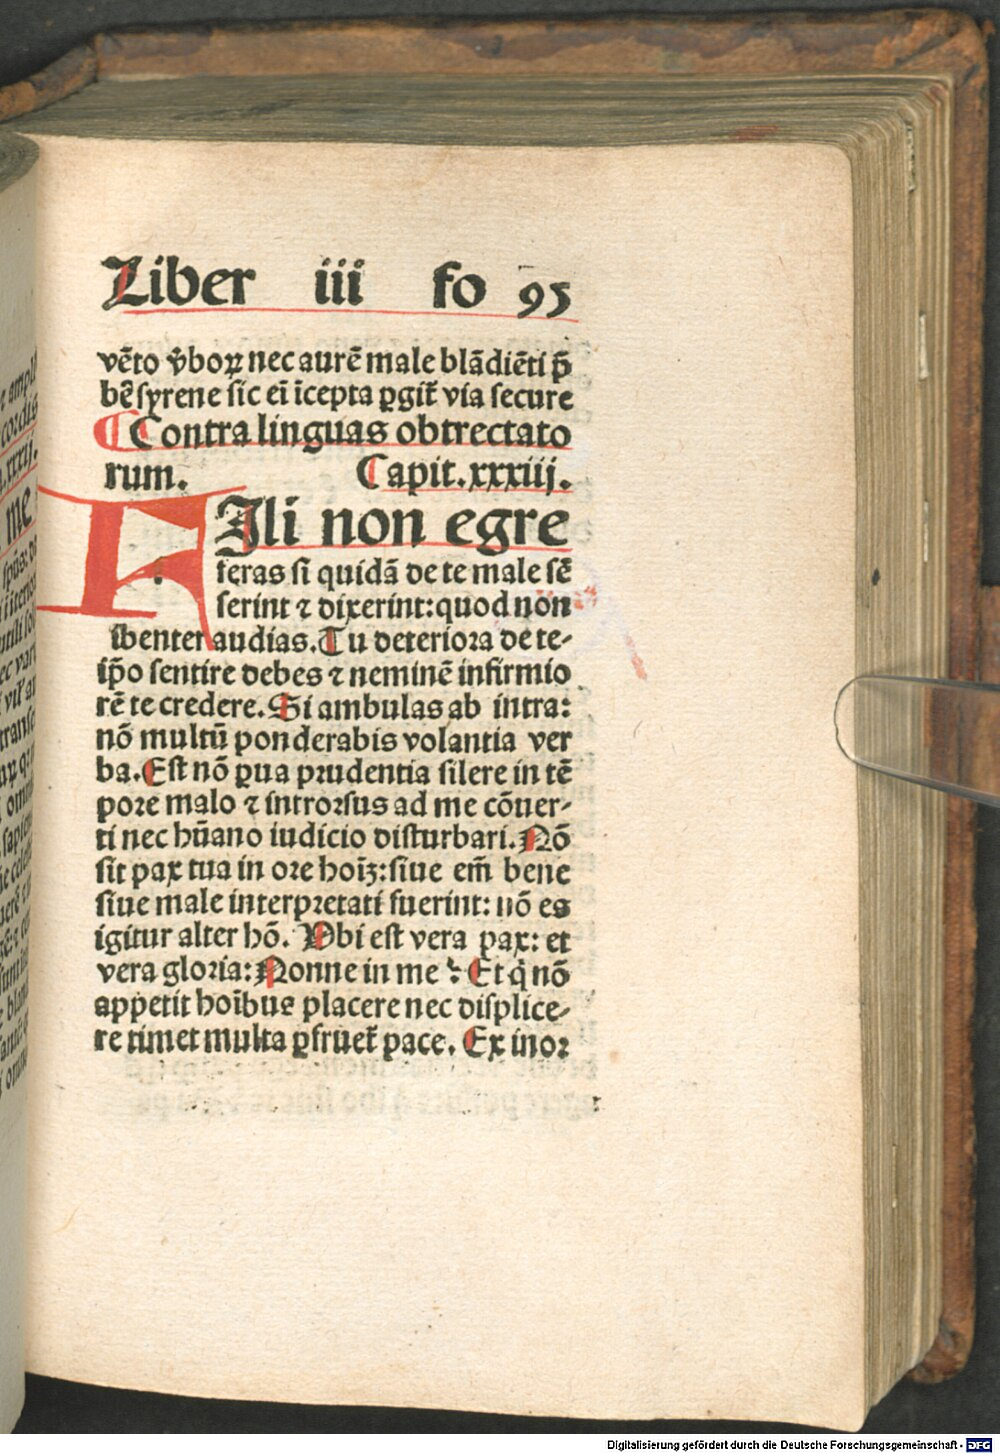 Liber iii fo 95
vēto v̄boꝝ nec aurē male blādiēti p̄
bē syrene sic ei īcepta ꝑgit̄ via secure
Contra linguas obtrectato
rum. Capit.xxxiij.
FIli non egre
feras si quidā de te male sē
serint ⁊ dixerint: quod non
libenter audias. Tu deteriora de te-
ip̄o sentire debes ⁊ neminē infirmio
rē te credere. Si ambulas ab intra:
nō multū ponderabis volantia ver
ba. Est nō ꝑua prudentia silere in tē
pore malo ⁊ introrsus ad me cōuer-
ti nec hūano iudicio disturbari. Nō
sit pax tua in ore hoīꝫ: siue em̄ bene
siue male interpretati fuerint: nō es
igitur alter hō. Ubi est vera pax: et
vera gloria: Nonne in me? Et q̇ nō
appetit hoībus placere nec displice-
re timet multa ꝑfruet̄ pace. Ex inor
Digitalisierung gefördert durch die Deutsche Forschungsgemeinschaft - DFG